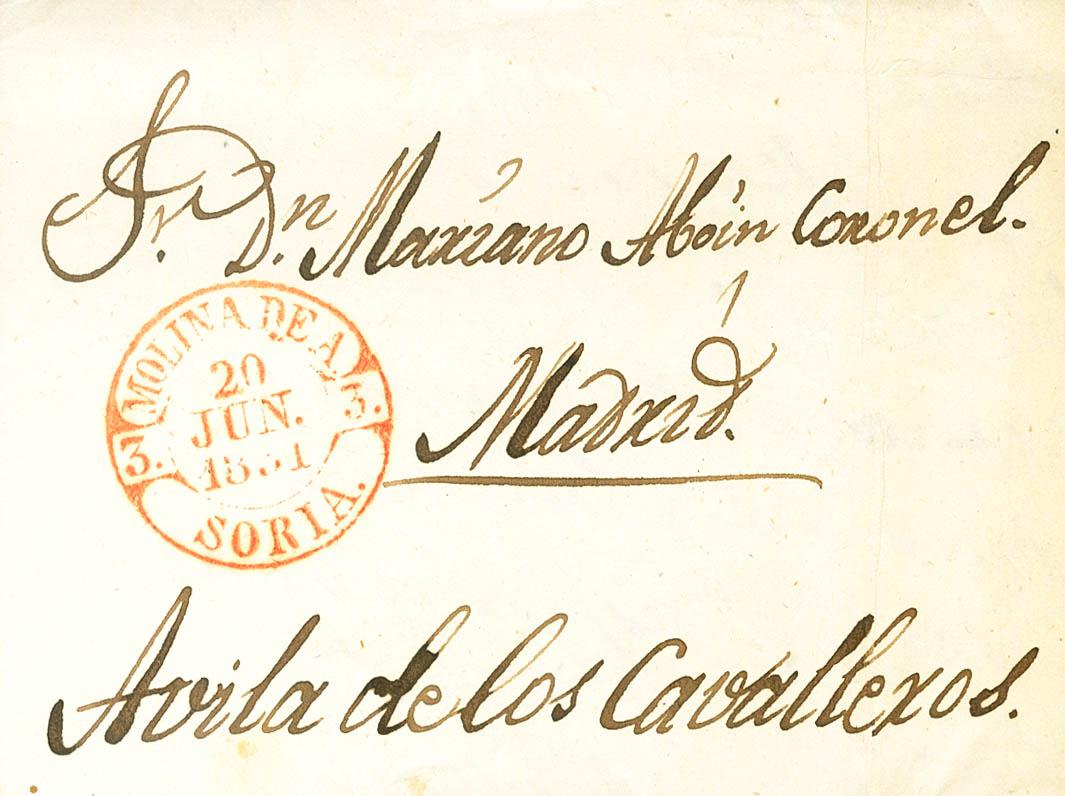 Sr. Dn. Mariano Aboin Coronel.
MOLINA DE A.
20
JUN.
1851
3. 3.
SORIA.
Madrid.
Avila de los Cavalleros.